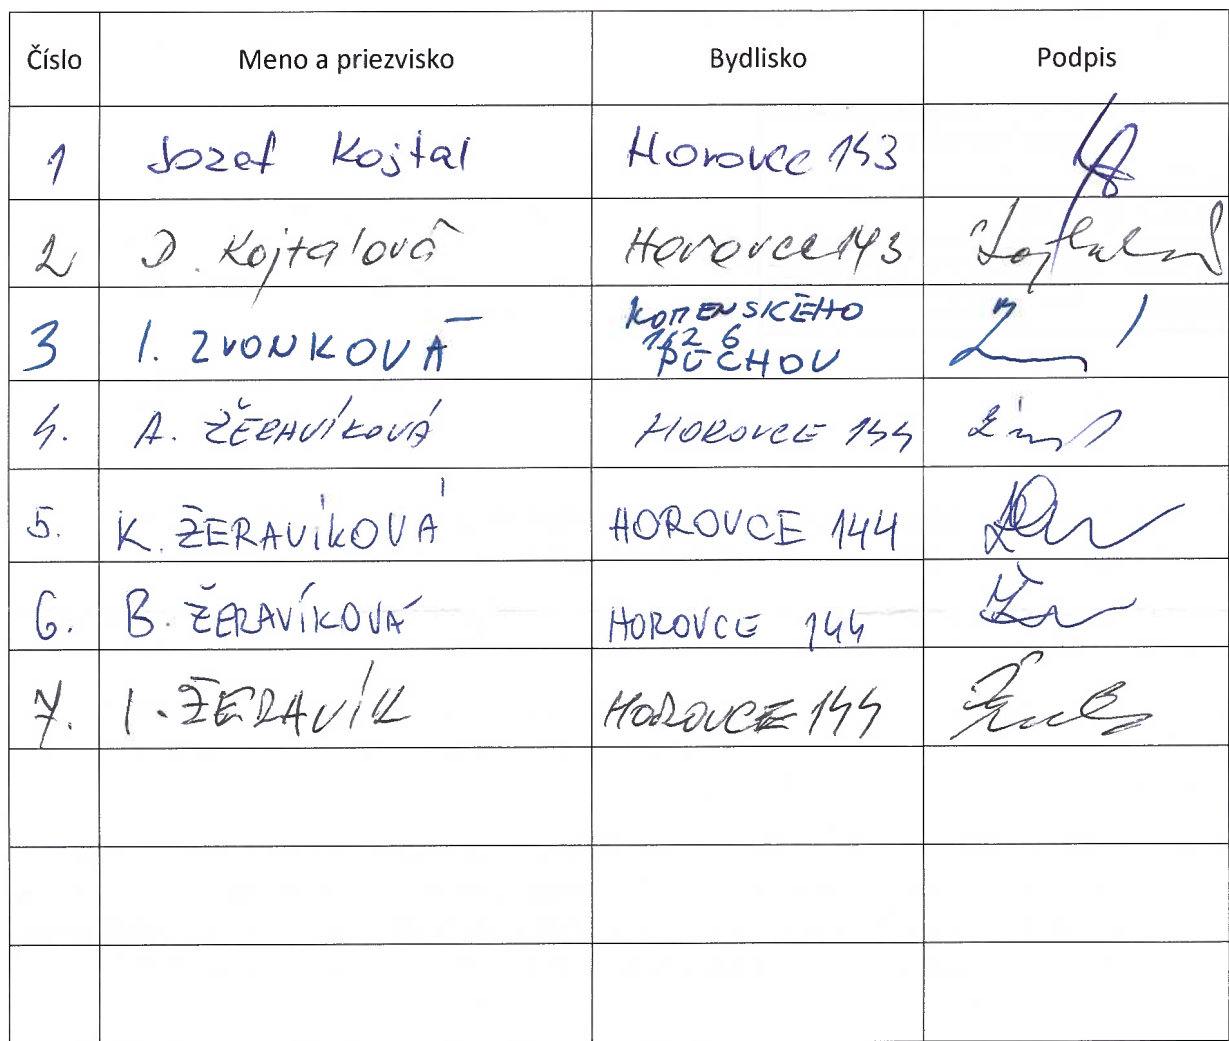 Číslo Meno a priezvisko Bydlisko Podpis
1 Jozef Kojtal Horovce 143
2 D. Kojtalová Horovce 143
3 I. ZVONKOVÁ KOMENSKÉHO
1626
PÚCHOV
4. A. ŽERAVÍKOVÁ HOROVCE 144
5. K. ŽERAVÍKOVÁ HOROVCE 144
6. B. ŽERAVÍKOVÁ HOROVCE 144
7. I. ŽERAVÍK HOROVCE 144